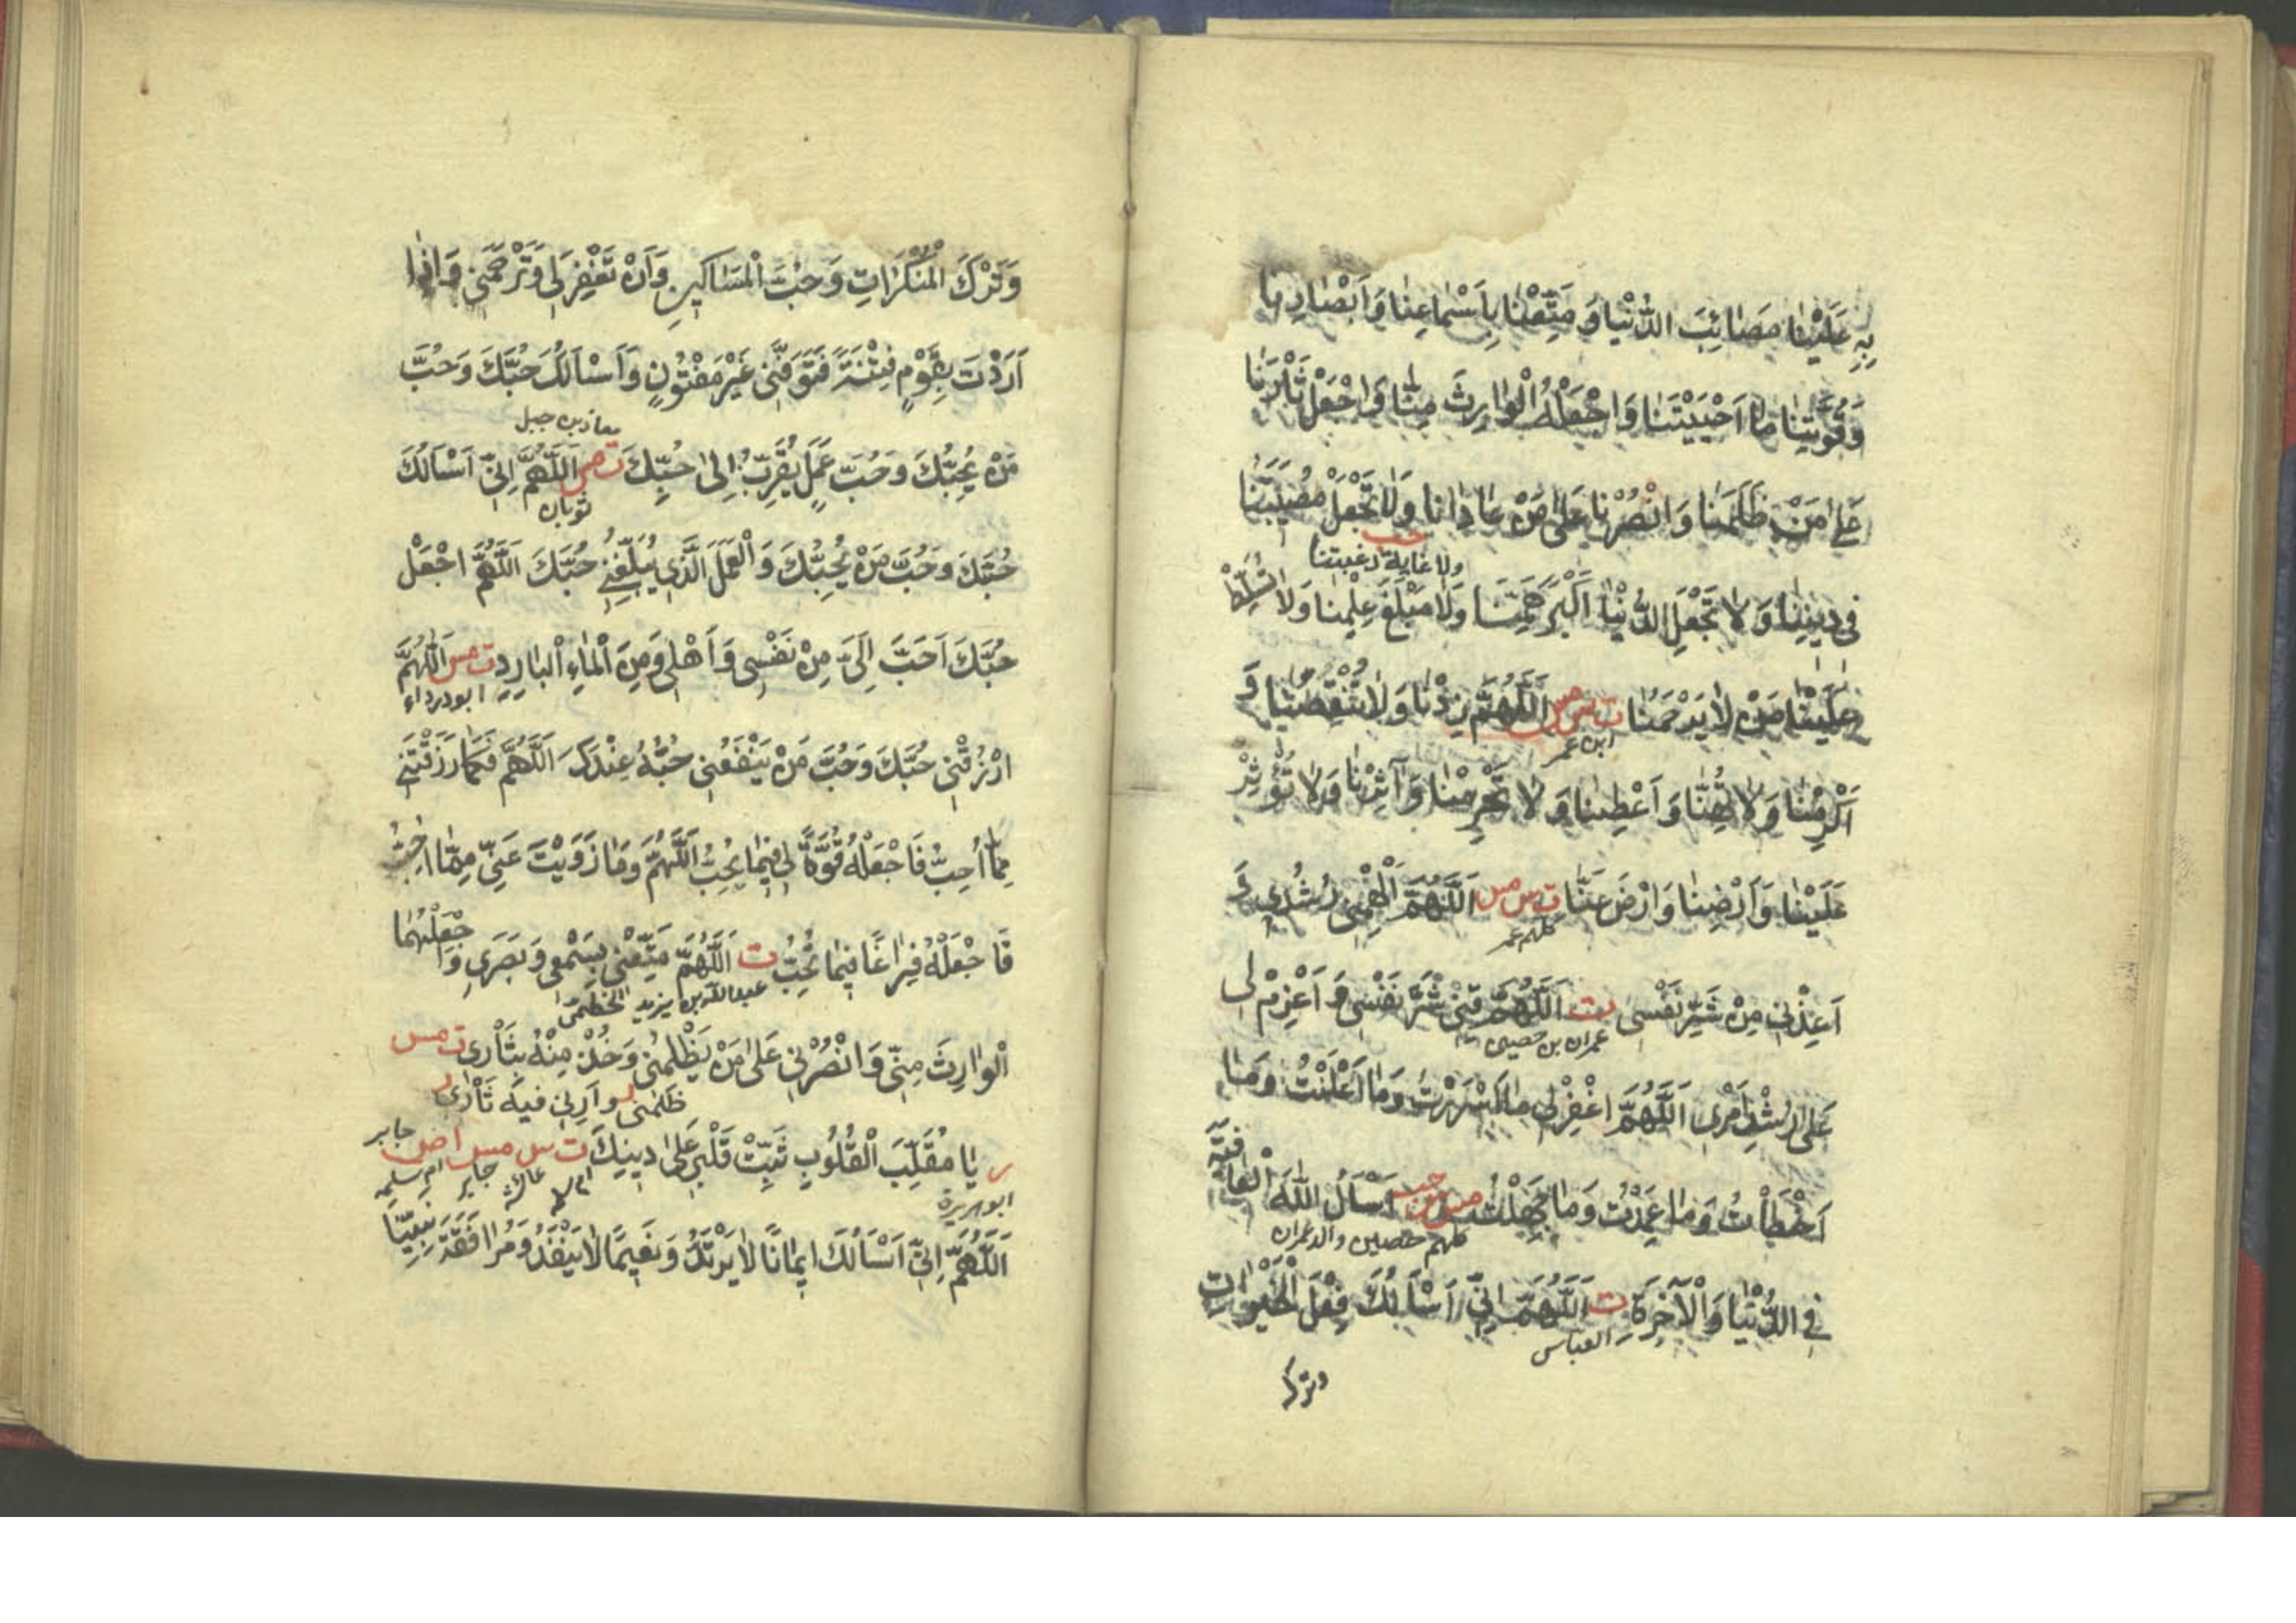 بِهِ عَلَيْنَا مَصَائِبَ الدُّنْيَا وَمَتِّعْنَا بِاَسْمَاعِنَا وَاَبْصَارِنَا
وَقُوَّتِنَا مَا اَحْيَيْتَنَا وَاجْعَلْهُ الْوَارِثَ مِنَّا وَاجْعَلْ ثَاْرَنَا
عَلىٰ مَنْ ظَلَمَنَا وَانْصُرْنَا عَلىٰ مَنْ عَادَانَا وَلَا تَجْعَلْ مُصِيبَتَنَا
حب
ولا غاية رغبتنا
فى دِينِنَا وَلَا تَجْعَلِ الدُّنْيَا اَكْبَرَ هَمِّنَا وَلَا مَبْلَغَ عِلْمِنَا وَلَا تُسَلِّطْ
عَلَيْنَا مَنْ لَا يَرْحَمُنَا ت س مس اَللّٰهُمَّ زِدْنَا وَلَا تَنْقُصْنَا وَ
ابن عمر
اَكْرِمْنَا وَلَا تُهِنَّا وَاَعْطِنَا وَلَا تَحْرِمْنَا وَآثِرْنَا وَلَا تُؤْثِرْ
عَلَيْنَا وَاَرْضِنَا وَارْضَ عَنَّا ت س مس اَللّٰهُمَّ اَلْهِمْنِى رُشْدِى وَ
كلهم عمر
اَعِذْنِى مِنْ شَرِّ نَفْسِى ت اَللّٰهُمَّ قِنِى شَرَّ نَفْسِى وَاَعْزِمْ لِى
عمران بن حصين
عَلىٰ رُشْدِ اَمْرِى اَللّٰهُمَّ اغْفِرْ لِى مَا اَسْرَرْتُ وَمَا اَعْلَنْتُ وَمَا
اَخْطَأْتُ وَمَا عَمَدْتُ وَمَا جَهِلْتُ مس س حب اَسْاَلُ اللهَ الْعَافِيَةَ
كلهم حصين والد عمران
فِى الدُّنْيَا وَالْآخِرَةِ ت اَللّٰهُمَّ اِنِّى اَسْاَلُكَ فِعْلَ الْخَيْرَاتِ
العباس
وترك
وَتَرْكَ الْمُنْكَرَاتِ وَحُبَّ الْمَسَاكِينِ وَاَنْ تَغْفِرَ لِى وَتَرْحَمَنِى وَاِذَا
اَرَدْتَ بِقَوْمٍ فِتْنَةً فَتَوَفَّنِى غَيْرَ مَفْتُونٍ وَاَسْاَلُكَ حُبَّكَ وَحُبَّ
معاذ بن جبل
مَنْ يُحِبُّكَ وَحُبَّ عَمَلٍ يُقَرِّبُ اِلىٰ حُبِّكَ ت مس اَللّٰهُمَّ اِنِّى اَسْاَلُكَ
ثوبان
حُبَّكَ وَحُبَّ مَنْ يُحِبُّكَ وَالْعَمَلَ الَّذِى يُبَلِّغُنِى حُبَّكَ اَللّٰهُمَّ اجْعَلْ
حُبَّكَ اَحَبَّ اِلَىَّ مِنْ نَفْسِى وَاَهْلِى وَمِنَ الْمَاءِ الْبَارِدِ ت مس اَللّٰهُمَّ
ابو درداء
ارْزُقْنِى حُبَّكَ وَحُبَّ مَنْ يَنْفَعُنِى حُبُّهُ عِنْدَكَ اَللّٰهُمَّ فَكَمَا رَزَقْتَنِى
مِمَّا اُحِبُّ فَاجْعَلْهُ قُوَّةً لِى فِيمَا تُحِبُّ اَللّٰهُمَّ وَمَا زَوَيْتَ عَنِّى مِمَّا اُحِبُّ
فَاجْعَلْهُ فِرَاغًا فِيمَا تُحِبُّ ت اَللّٰهُمَّ مَتِّعْنِى بِسَمْعِى وَبَصَرِى وَاجْعَلْهُمَا
عبدالله بن يزيد الخطمى
الْوَارِثَ مِنِّى وَانْصُرْنِى عَلىٰ مَنْ يَظْلِمُنِى وَخُذْ مِنْهُ بِثَأْرِى ت مس
ظلمنى ر وَاَرِنِى فِيهِ ثَأْرِى ر
ر يَا مُقَلِّبَ الْقُلُوبِ ثَبِّتْ قَلْبِى عَلىٰ دِينِكَ ت س مس ا ص جابر
ابو هريرة عائشة جابر ام سلمه
اَللّٰهُمَّ اِنِّى اَسْاَلُكَ اِيمَانًا لَا يَرْتَدُّ وَنَعِيمًا لَا يَنْفَدُ وَمُرَافَقَةَ نَبِيِّنَا